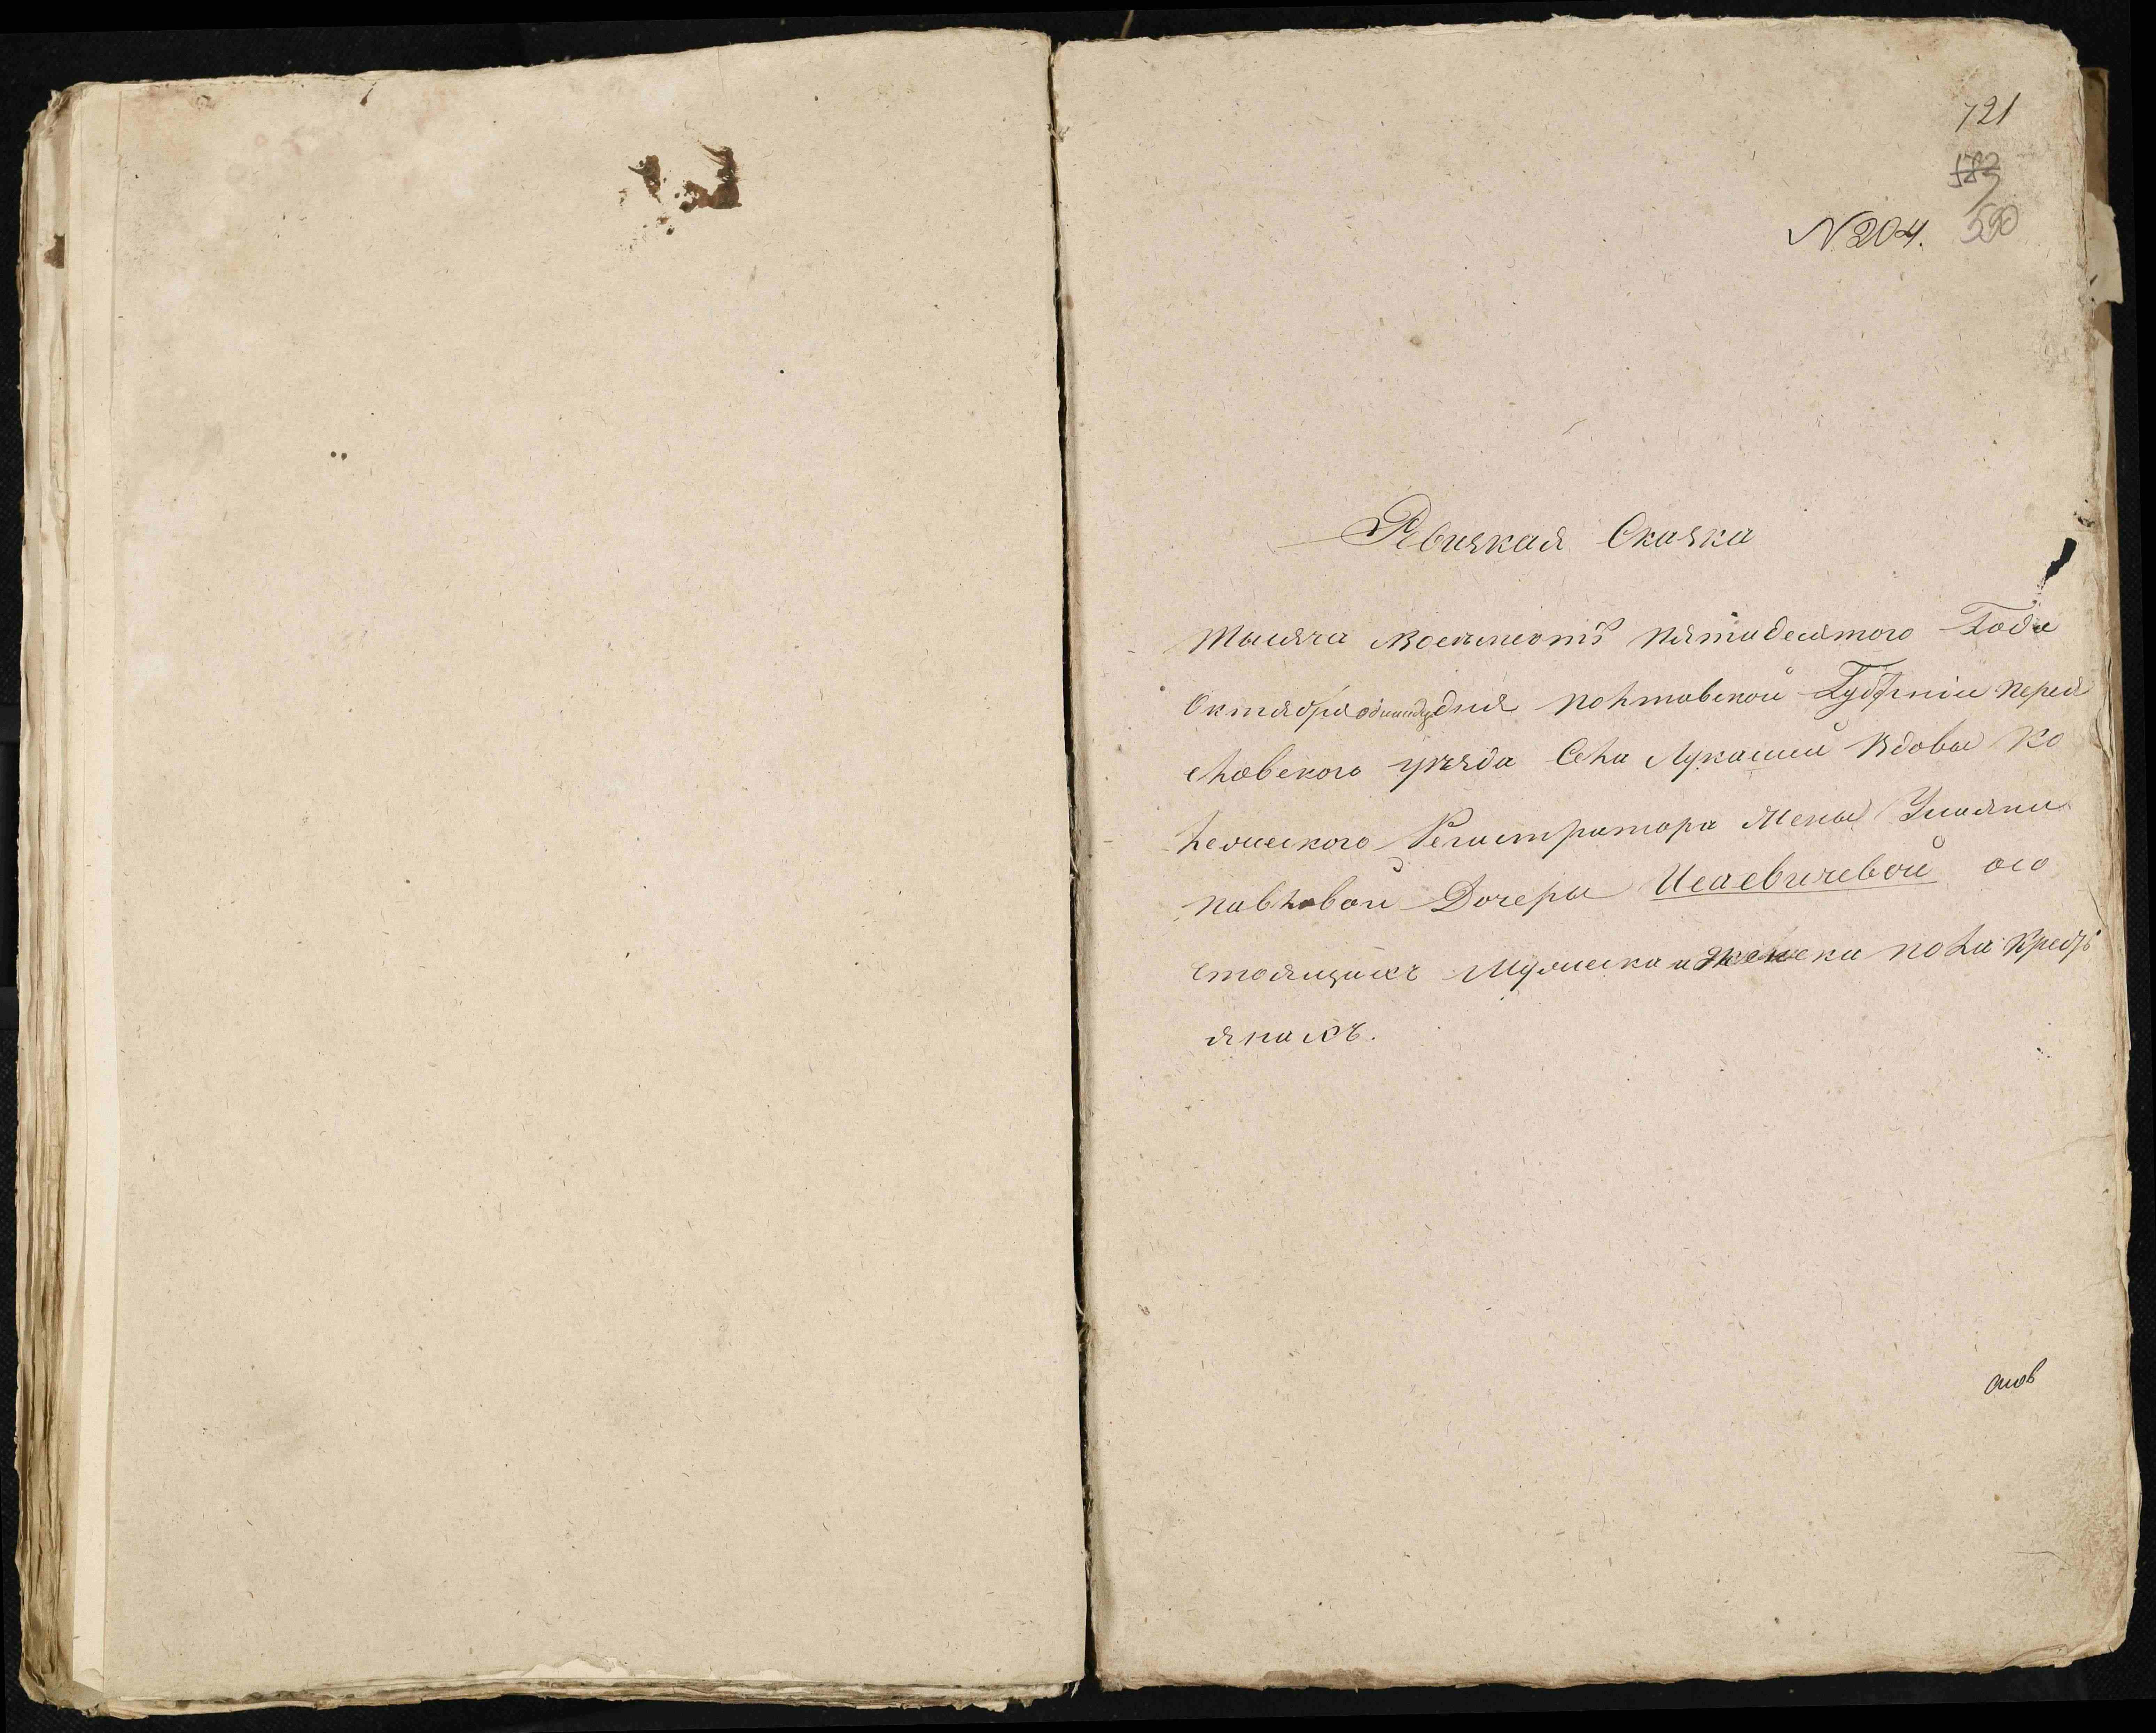 721
583
590
N 204.
Ревизкая Сказка
тысяча восемьсотъ пятидесятого Года
Октября дня полтавской Губерніи перея
славского уезда Села Лукаши вдовы ко
лежского Регистратора жены Ульяни
павловой Дочери Исаевичевой осо
стоящихъ Мужеска и женска пола Крест
янахъ.